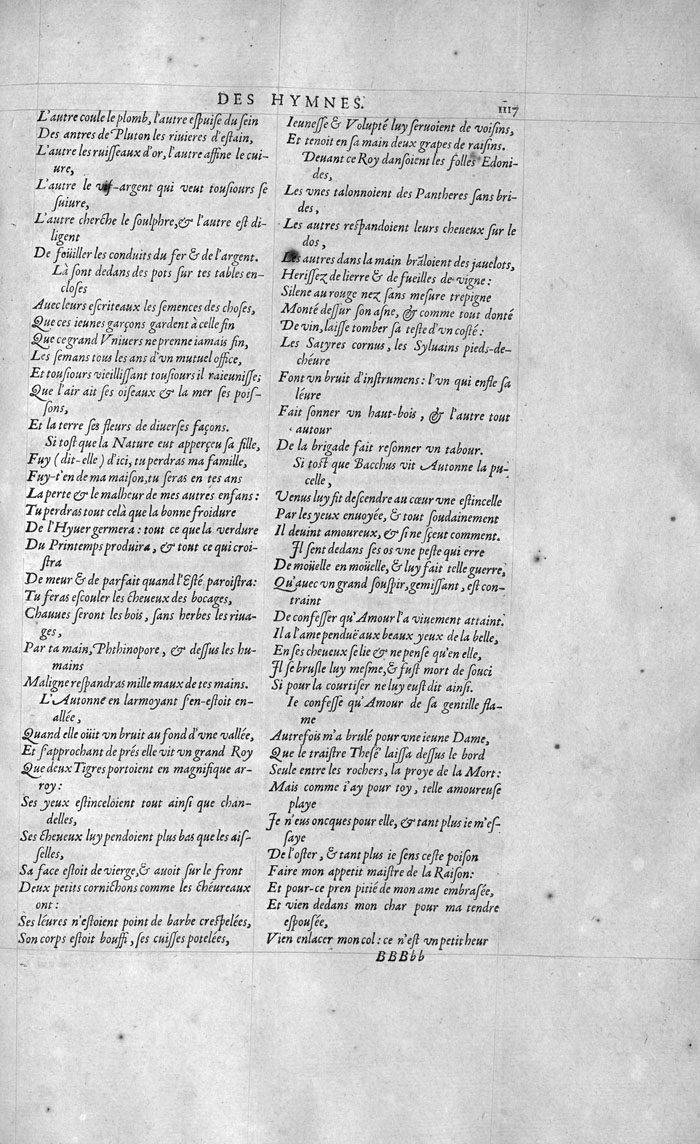 DES HYMNES.
1117
L'autre coule le plomb, l'autre espuise du sein
Des antres de Pluton les riuieres d'estain,
L'autre les ruisseaux d'or, l'autre affine le cui-
ure,
L'autre le vif-argent qui veut tousiours se
suiure,
L'autre cherche le soulphre, & l'autre est di-
ligent
De foüiller les conduits du fer & de l'argent.
Là sont dedans des pots sur tes tables en-
closes
Auec leurs escriteaux les semences des choses,
Que ces ieunes garçons gardent à celle fin
Que ce grand Vniuers ne prenne iamais fin,
Les semans tous les ans d'vn mutuel office,
Et tousiours vieillissant tousiours il raieunisse;
Que l'air ait ses oiseaux & la mer ses pois-
sons,
Et la terre ses fleurs de diuerses façons.
Si tost que la Nature eut apperçeu sa fille,
Fuy (dit-elle) d'ici, tu perdras ma famille,
Fuy-t'en de ma maison, tu seras en tes ans
La perte & le malheur de mes autres enfans:
Tu perdras tout celà que la bonne froidure
De l'Hyuer germera: tout ce que la verdure
Du Printemps produira, & tout ce qui croi-
stra
De meur & de parfait quand l'Esté paroistra:
Tu feras escouler les cheueux des bocages,
Chauues seront les bois, sans herbes les riua-
ges,
Par ta main, Phthinopore, & dessus les hu-
mains
Maligne respandras mille maux de tes mains.
L'Autonne en larmoyant s'en-estoit en-
allée,
Quand elle oüit vn bruit au fond d'vne vallée,
Et s'approchant de prés elle vit vn grand Roy
Que deux Tigres portoient en magnifique ar-
roy:
Ses yeux estinceloient tout ainsi que chan-
delles,
Ses cheueux luy pendoient plus bas que les ais-
selles,
Sa face estoit de vierge, & auoit sur le front
Deux petits cornichons comme les chéureaux
ont:
Ses léures n'estoient point de barbe crespelées,
Son corps estoit bouffi, ses cuisses potelées,
Ieunesse & Volupté luy seruoient de voisins,
Et tenoit en sa main deux grapes de raisins.
Deuant ce Roy dansoient les folles Edoni-
des,
Les vnes talonnoient des Pantheres sans bri-
des,
Les autres respandoient leurs cheueux sur le
dos,
Les autres dans la main brâloient des jauelots,
Herissez de lierre & de fueilles de vigne:
Silene au rouge nez sans mesure trepigne
Monté dessur son asne, & comme tout donté
De vin, laisse tomber sa teste d'vn costé:
Les Satyres cornus, les Syluains pieds-de-
chéure
Font vn bruit d'instrumens: l'vn qui enfle sa
léure
Fait sonner vn haut-bois, & l'autre tout
autour
De la brigade fait resonner vn tabour.
Si tost que Bacchus vit Autonne la pu-
celle,
Venus luy fit descendre au cœur vne estincelle
Par les yeux enuoyée, & tout soudainement
Il deuint amoureux, & si ne sçeut comment.
Il sent dedans ses os vne peste qui erre
De moüelle en moüelle, & luy fait telle guerre,
Qu'auec vn grand souspir, gemissant, est con-
traint
De confesser qu'Amour l'a viuement attaint.
Il a l'ame penduë aux beaux yeux de la belle,
En ses cheueux se lie & ne pense qu'en elle,
Il se brusle luy mesme, & fust mort de souci
Si pour la courtiser ne luy eust dit ainsi.
Ie confesse qu'Amour de sa gentille fla-
me
Autrefois m'a brulé pour vne ieune Dame,
Que le traistre Thesé laissa dessus le bord
Seule entre les rochers, la proye de la Mort:
Mais comme i'ay pour toy, telle amoureuse
playe
Je n'eus oncques pour elle, & tant plus ie m'es-
saye
De l'oster, & tant plus ie sens ceste poison
Faire mon appetit maistre de la Raison:
Et pour-ce pren pitié de mon ame embrasée,
Et vien dedans mon char pour ma tendre
espousée,
Vien enlacer mon col: ce n'est vn petit heur
BBBbb